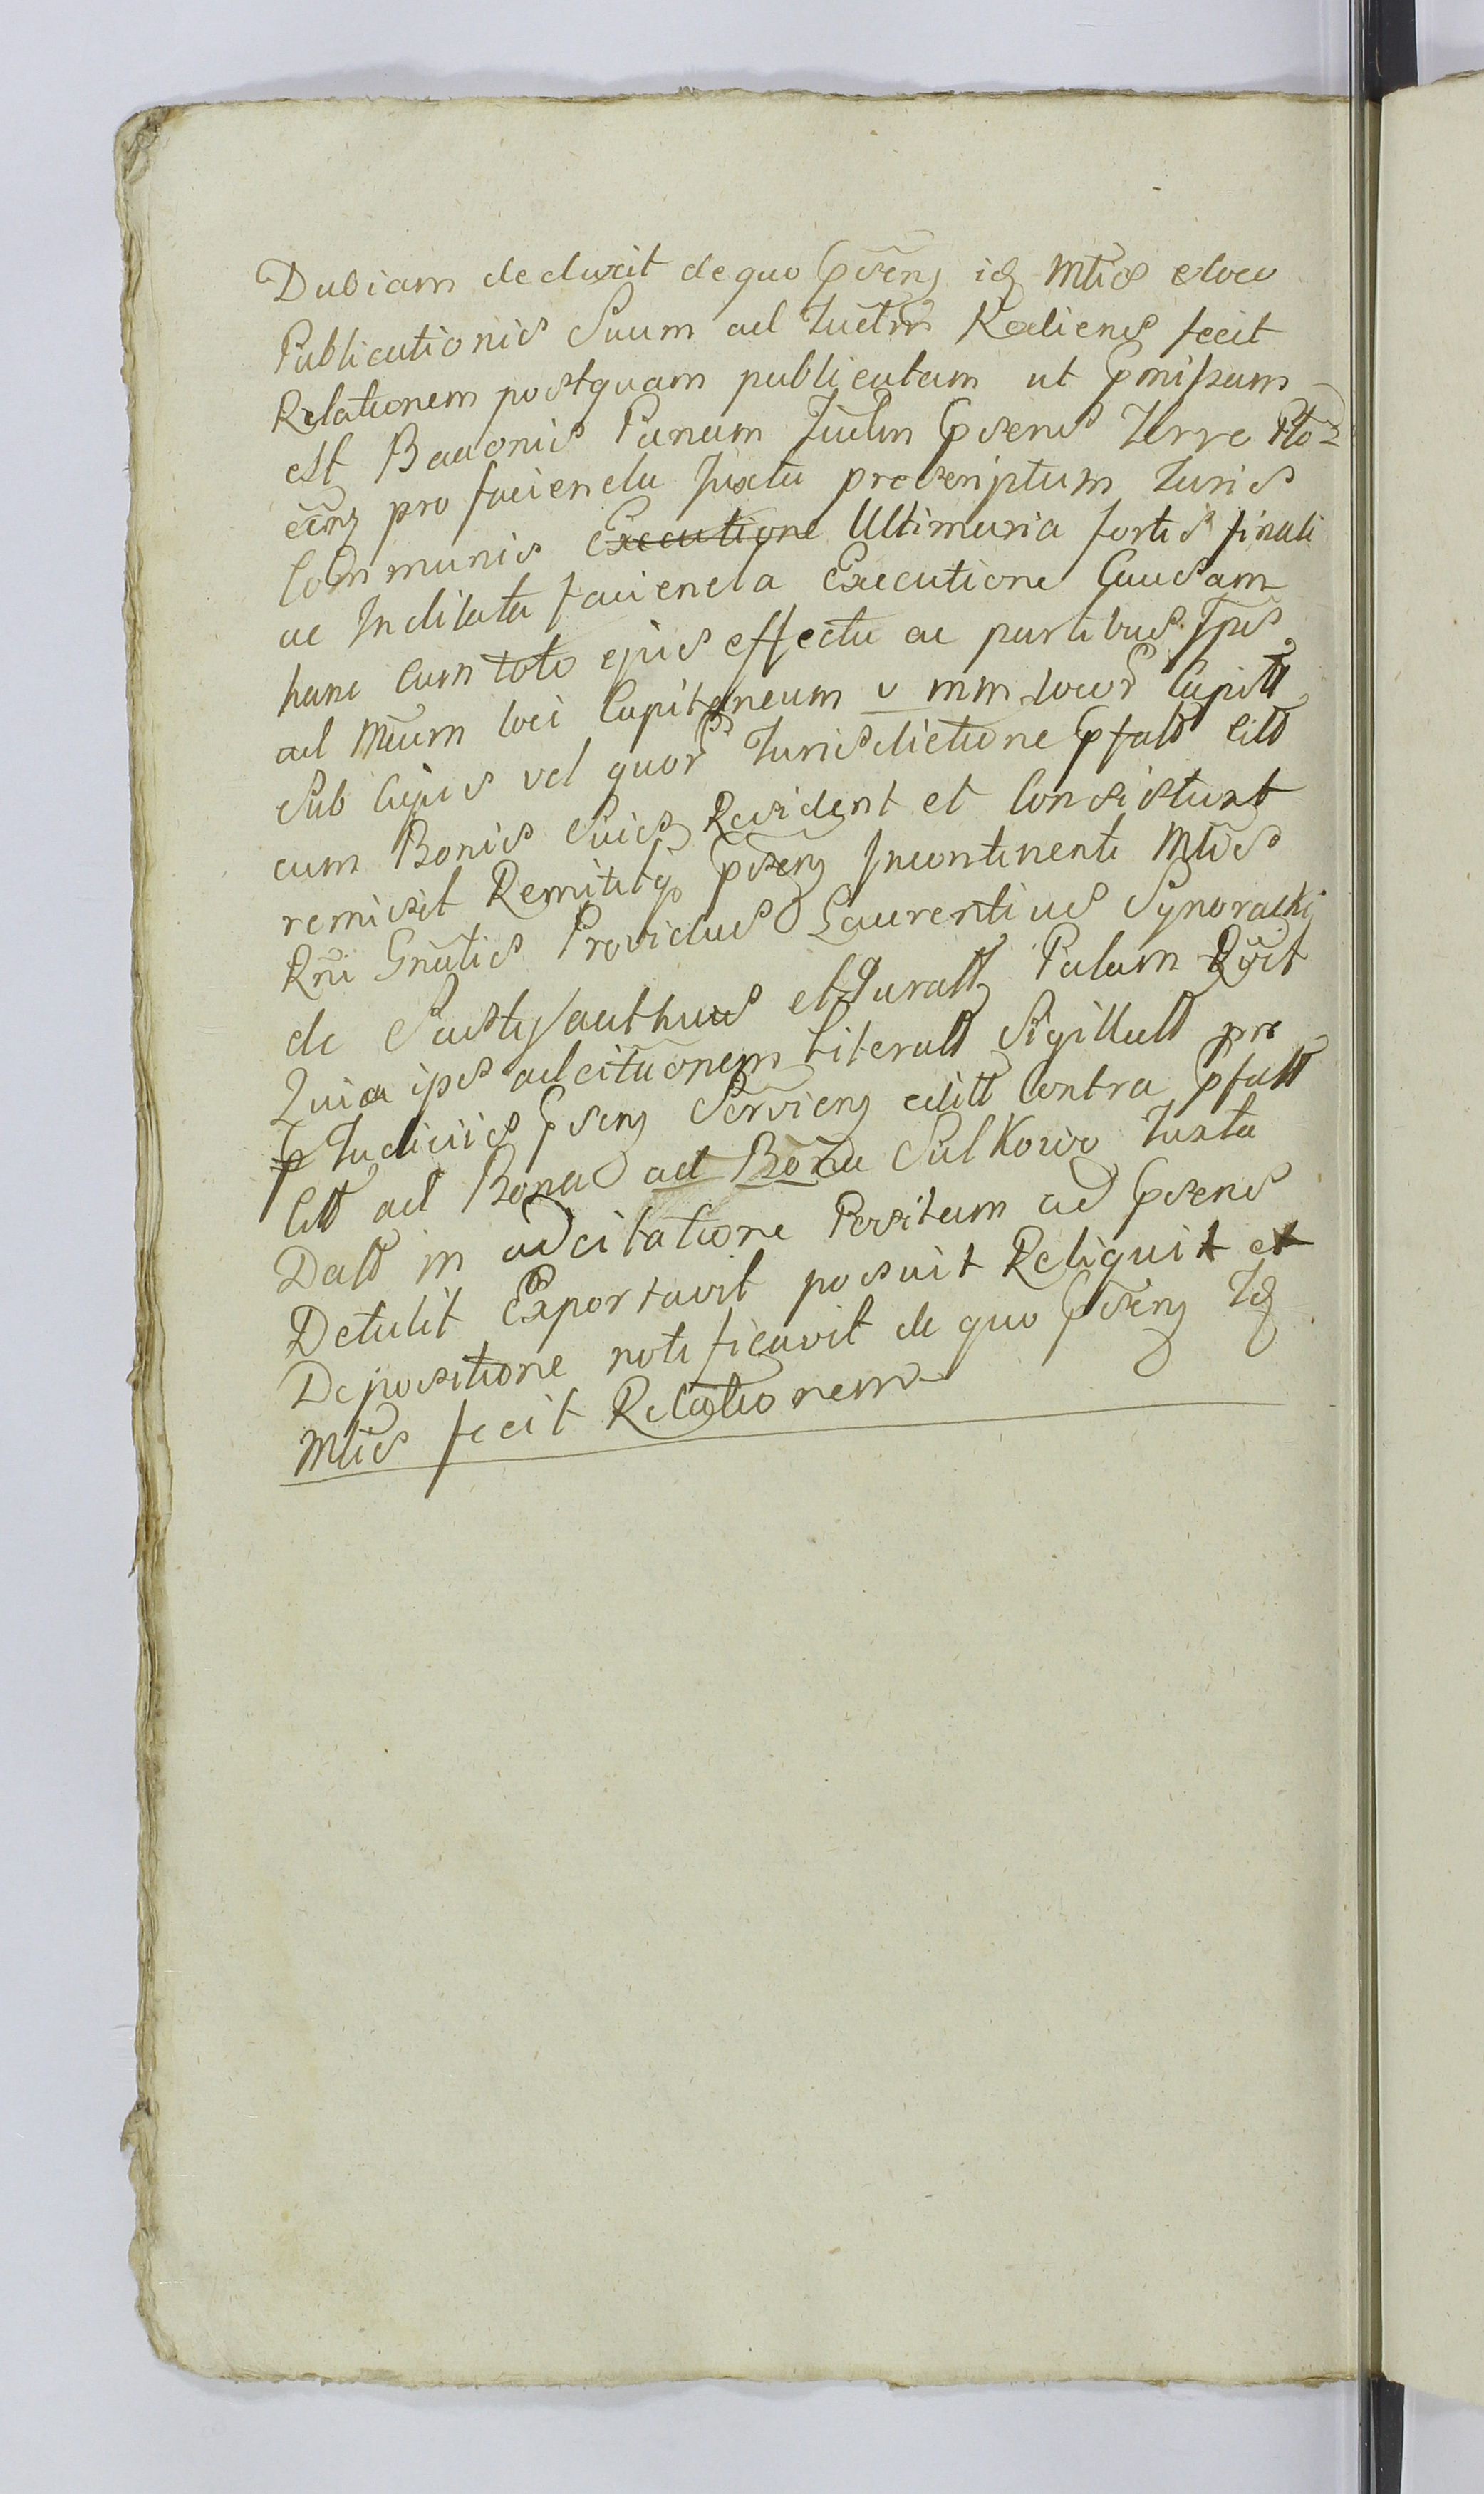 Dubiam deduxit de quo Gpræns id Mtis ex loco
Publicationis Suum ad Iuctm Rediens fecit
Relationem postquam publicatam ut Pmissum
est Bannonis Panam Iudm Psens Terre Plo=
cens pro facienda Juxta prescriptum Juris
Communis Executione Ultimaria fortis finali
ac Indilata facienda Executione Causam
hanc cum toto ejus effectu ac partibus Ipis
ad Mcum loci Capitaneum v mm locor Capitt
Sub cujus vel quor Jurisdictione Pfatt Citt
cum Bonis Suis Resident et Consistunt
remisit Remititq psens Incontinenti Mtis
Rni Gnalis Providus Laurentius Synoracki
de authus et Juratt Palam Rgvit
Quia ips adcitaonem Literatt Sigillatt pre
p Iudiciis Psens Serviens editt Contra Pfatt
Citt ad Bona ad Bona Sulkowo Juxta
Datt in adcitatione Positum ad Psens
Detulit Exportavit posuit Reliquit et
Depositione notificavit de quo Psens Id
Mtis fecit Relationem